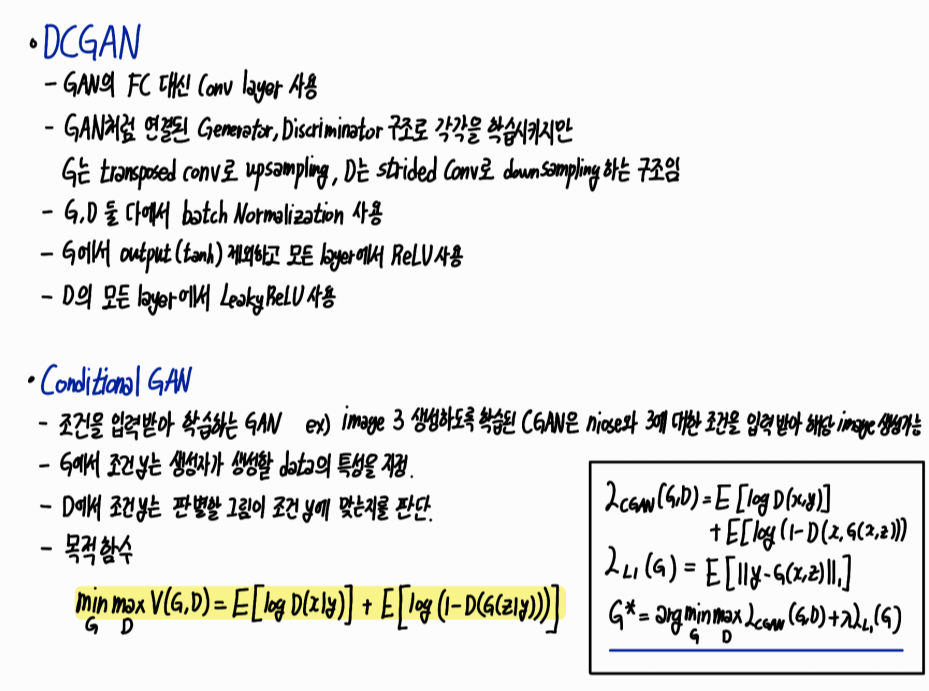 • DCGAN
– GAN의 FC 대신 Conv layer 사용
– GAN처럼 연결된 Generator, Discriminator 구조로 각각을 학습시키지만
G는 transposed conv로 upsampling, D는 strided Conv로 downsampling 하는 구조임
– G, D 둘 다에서 batch Normalization 사용
– G에서 output (tanh) 제외하고 모든 layer에서 ReLU 사용
– D의 모든 layer에서 LeakyReLU 사용
• Conditional GAN
– 조건을 입력받아 학습하는 GAN ex) image 3 생성하도록 학습된 CGAN은 niose와 3에 대한 조건을 입력 받아 해당 image 생성가능
– G에서 조건 y는 생성자가 생성할 data의 특성을 지정.
– D에서 조건 y는 판별할 그림이 조건 y에 맞는지를 판단.
– 목적함수
min max V(G,D) = E[log D(x|y)] + E[log (1-D(G(z|y)))]
G D
ℒcGAN (G,D) = E [log D(x,y)]
+ E[log (1-D(x, G(x,z)))
ℒL1 (G) = E[||y-G(x,z)||₁]
G* = arg min max ℒcGAN (G,D) + λℒL1 (G)
G D